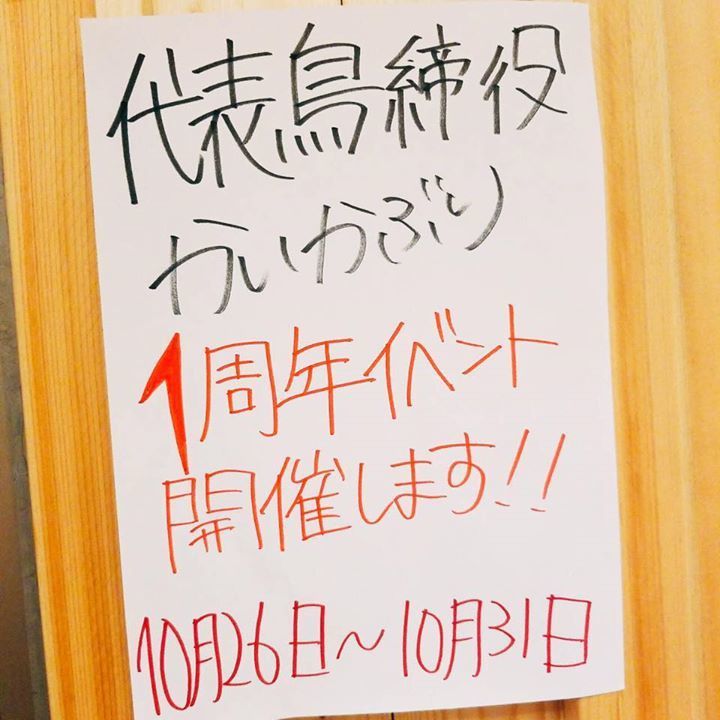 代表鳥締役
かいかぶり
1周年イベント
開催します!!
10月26日～10月31日